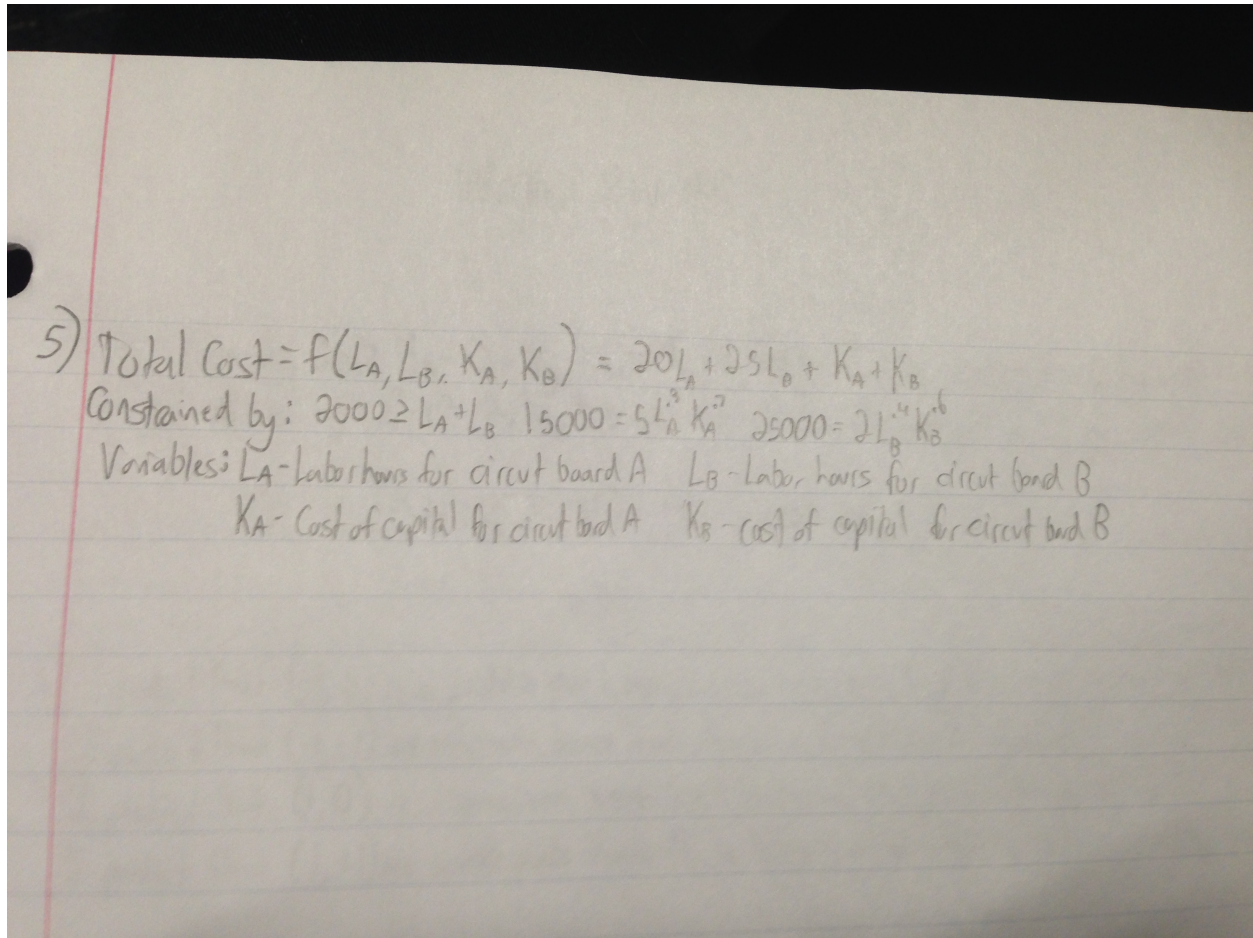 5) Total Cost = f(L_A, L_B, K_A, K_B) = 20L_A + 25L_B + K_A + K_B
Constrained by: 2000 ≥ L_A + L_B 15000 = 5L_A^.3 K_A^.7 25000 = 2L_B^.4 K_B^.6
Variables: L_A - Labor hours for circut board A L_B - Labor hours for circut bord B
K_A - Cost of capital for circut bord A K_B - cost of capital for circut bord B